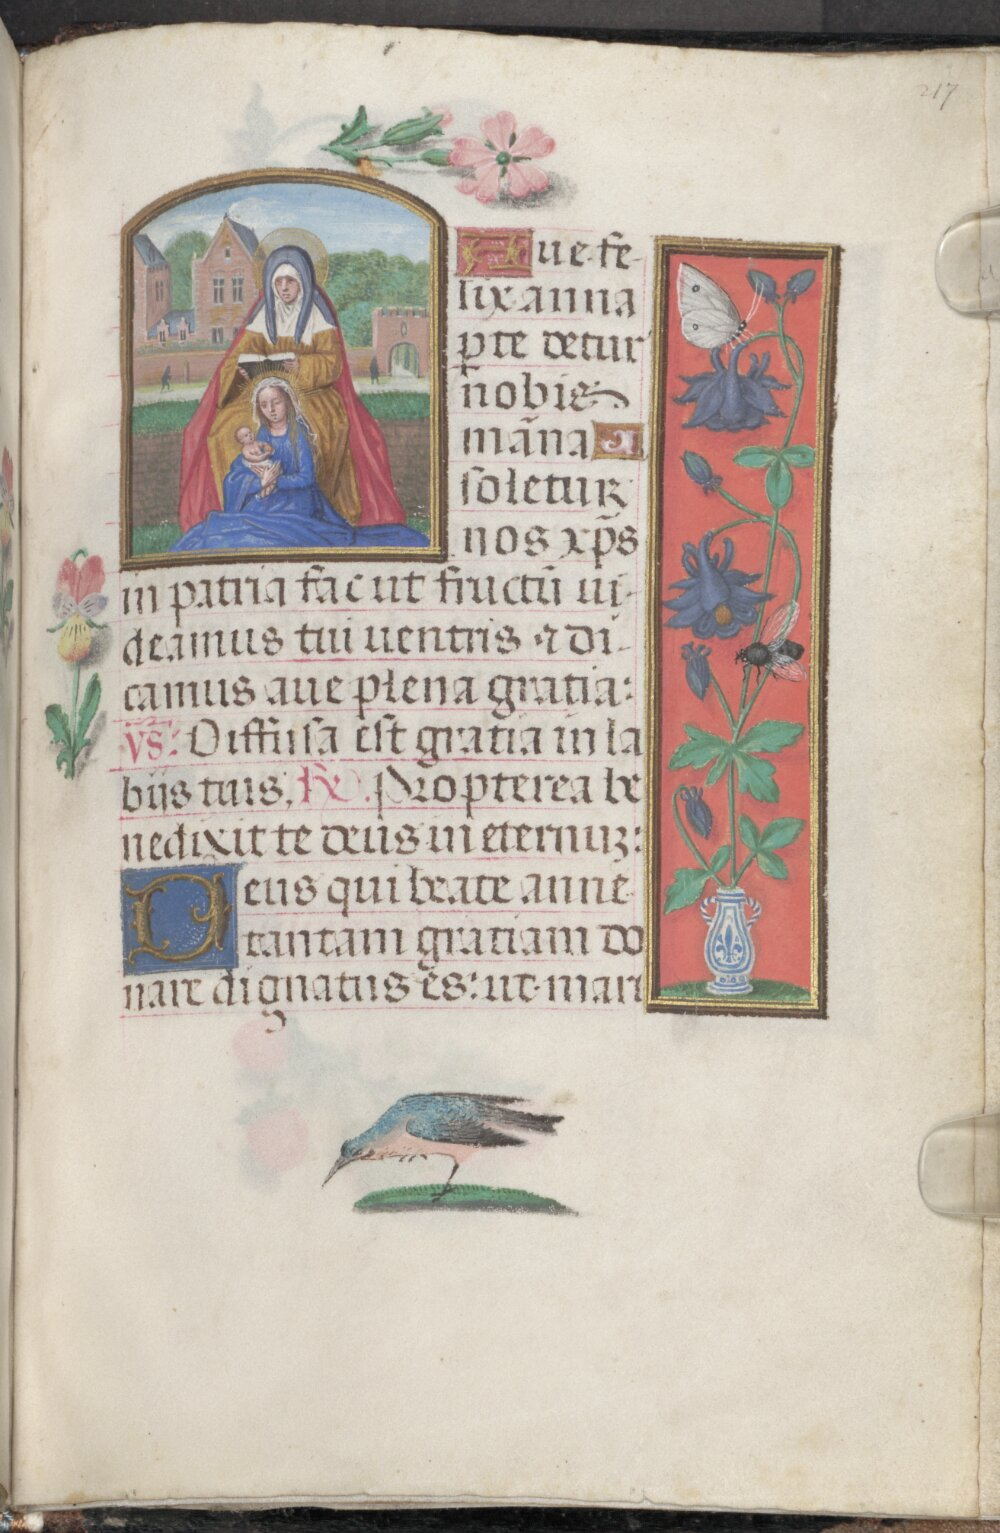 217
Aue fe-
lix anna
p̱ te detur
nobis
māna A
soletur
nos xp̄s
in patria fac ut fructū ui-
deamus tui uentris ⁊ di-
camus aue plena gratia:
VS: Diffusa est gratia in la
biis tuis. R. Propterea be
nedixit te deus in eternuꝫ:
Deus qui beate anne
tantam gratiam do
nare dignatus es: ut mari